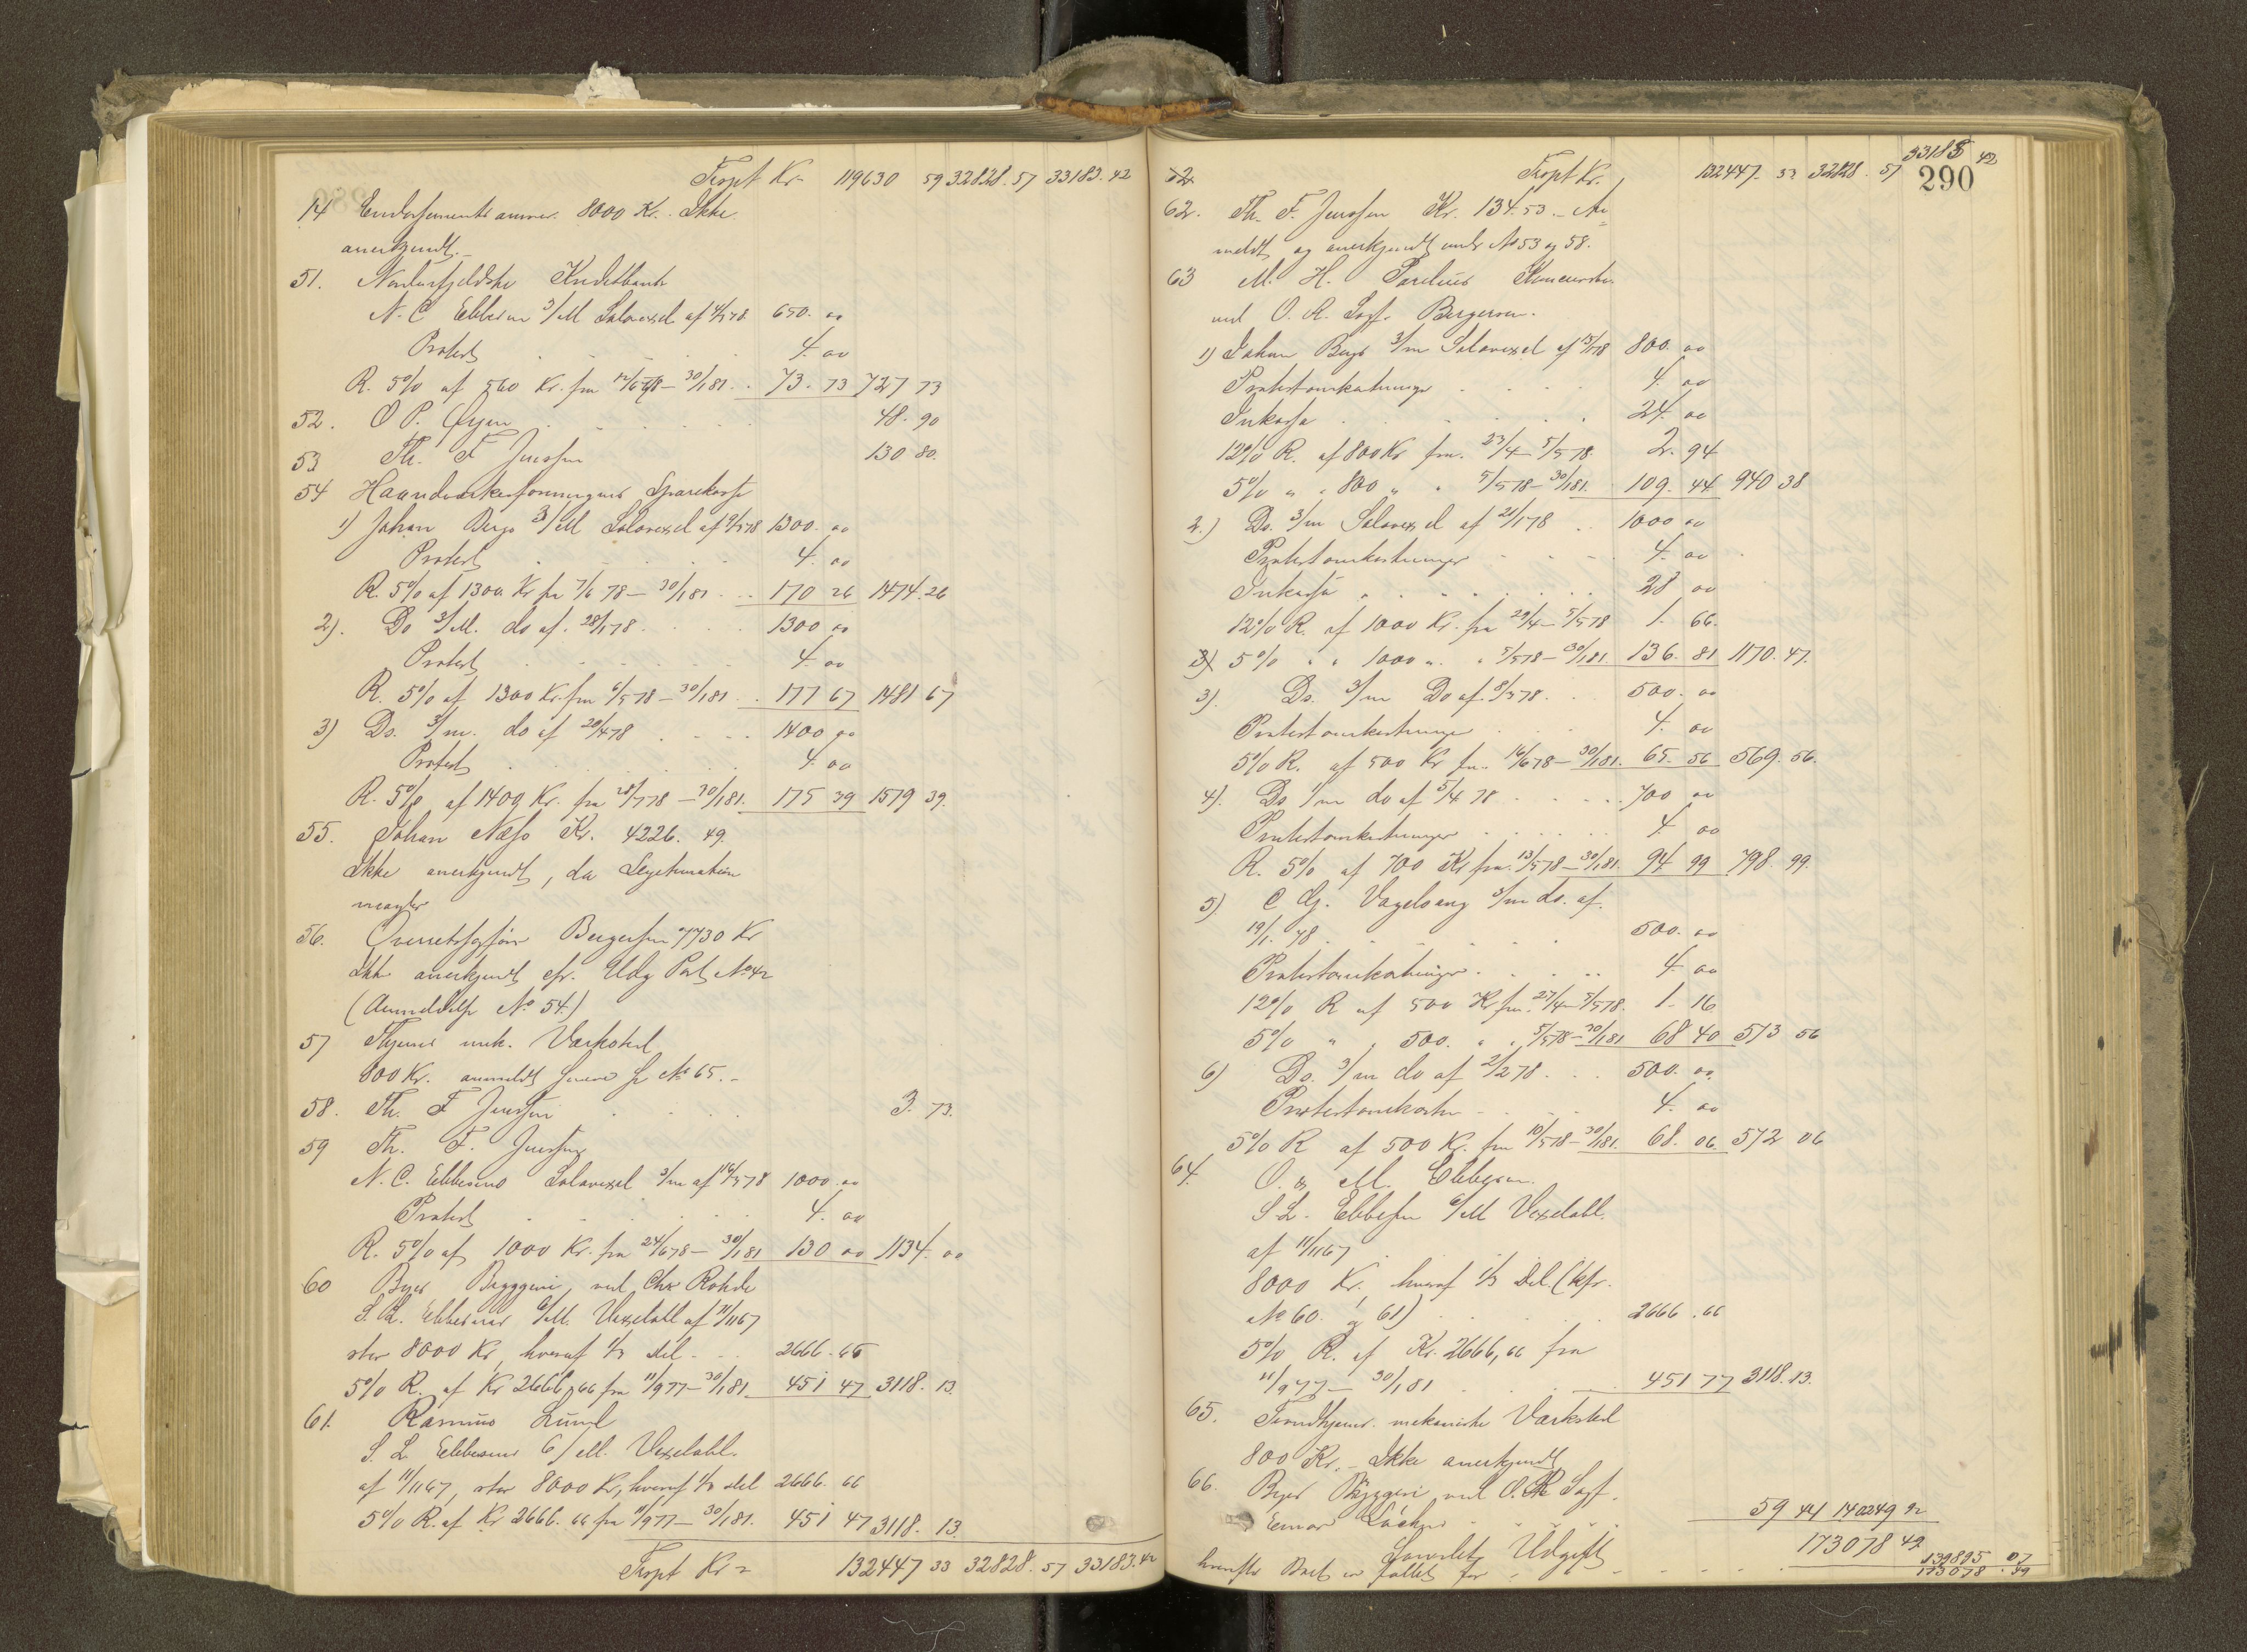 Trspt Kr. 119630 59 32828. 57 33183. 42
14 Endossements ansvar. 8000 Kr. Ikke
anerkjendt. -
51. Nordenfjeldske Kreditbank
N. C. Ebbesens 3/M Solavexel af 4/3 78. 650. 00
Protest 4. 00
R. 5% af 560 Kr. fra 12/6 78 - 30/1 81. 73. 73 727 73
52. O P. Øyen 48. 90
53 Th. F Jenssen 130 80.
54 Haandværkerforeningens Sparekasse
1) Johan Bergs 3/M Solavexel af 1300. 00
Protest 4. 00
R. 5% af 1300 Kr fra 7/6 78 - 30/1 81 170 26 1474. 26
2). Do 3/M. do af. 28/1 78 1300 00
Protest 4. 00
R. 5% af 1300 Kr. fra 6/5 78 - 30/1 81 177 67 1481 67
3) Do. 3/m. do af 20/4 78 1400 00
Protest 4 00
R. 5% af 1400 Kr. fra 28/7 78 - 30/1 81. 175 39 1579 39.
55. Johan Næss Kr. 4226. 49.
Ikke anerkjendt, da Legitimation
mangler
56. Overretssagfører Bergersen 7730 Kr
Ikke anerkjendt cfr. Udg Post No 42
(Anmeldelse No 54.)
57 Thjems mek. Værksted
800 Kr. anmeldt senere se No 65. -
58. Th. F Jenssen 3. 73.
59 Th. F. Jenssen
N. C. Ebbesens Solavexel 3/m af 1000. 00
Protest 4. 00
R. 5% af 1000 Kr. fra 24/6 78 - 30/1 81 130 00 1134. 00
60 Byes Bryggeri, ved Chr Rohde
S. L. Ebbesens 6/M. Vexelobl af 11/11 67
stor 8000 Kr, hvoraf 1/3 del 2666. 66
5% R. af Kr 2666,66 fra 11/9 77 - 30/1 81. 451 47 3118. 13.
61. Rasmus Lund
S. L Ebbesens 6/M. Vexelobl.
af 11/11 67, stor 8000 Kr, hvoraf 1/3 del 2666. 66
5% R. af Kr 2666. 66 fra 11/9 77 - 30/1 81. 451 47 3118. 13.
Trspt Kr 132447 33 32828. 57 33183. 42
62 Trspt Kr. 132447. 33 32828. 57 33183 42
290
62. Th. F. Jenssen Kr. 134. 53. - An
meldt og anerkjendt under No 53 og 58.
63 M. H. Parelius
ved O. R. Sagf. Bergersen.
1) Johan Bergs 3/m Solavexel af 800. 00
Protestomkostninger 4. 00
Inkasso 24. 00
12% R. af 800 Kr fra. 23/4 - 5/5 78. 2. 94
5% " " 800 " " 5/5 78 - 30/1 81. 109. 44 940 38
2.) Do. 3/m Solavexel af 21/1 78 1000 00
Protestomkostninger 4. 00
Inkasso 28 00
12% R. af 1000 Kr. fra 29/4 - 5/5 78 1. 66.
3) 5% " " 1000 " " 5/5 78 - 30/1 81. 136. 81 1170. 47.
3). Do. 3/m Do af. 8/3 78. 500. 00
Protestomkostninger 4. 00
5% R. af 500 Kr fra. 16/6 78 - 30/1 81. 65. 56 569. 56.
4). Do 1/m do af 5/4 78 700 00
Protestomkostninger 4. 00
R. 5% af 700 Kr fra. 13/5 78 - 30/1 81. 94 99 798. 99.
5) C G. Vogelsang 3/m do. af.
19/1. 78. 500. 00
Protestomkostninger. 4. 00
12% R af 500 Kr fra. 27/4 - 5/5 78. 1. 16.
5% " " 500. " " 5/5 78 - 30/1 81 68 40 573 56
6) Do. 3/m do af 2/2 78. 500. 00.
Protestomkostn 4. 00
5% R af 500 Kr. fra 10/5 78 - 30/1 81. 68. 06. 572 06
64. O. & M. Ebbesen.
S L. Ebbesen 6/M Vexelobl.
af 11/11 67
8000 Kr. hvoraf 1/3 del (kfr.
No 60. og 61) 2666. 66
5% R. af Kr. 2666,66 fra
11/9 77 - 30/1 81 451 77 3118. 13.
65. Trondhjems. mekaniske Værksted
800 Kr. - Ikke anerkjendt
66. Byes Bryggeri ved O. R Sagf.
Einar 59 44 140249 92
Samlet Udgift 173078 49
hvorefter Boet er fallit for 139895 07
173078. 49